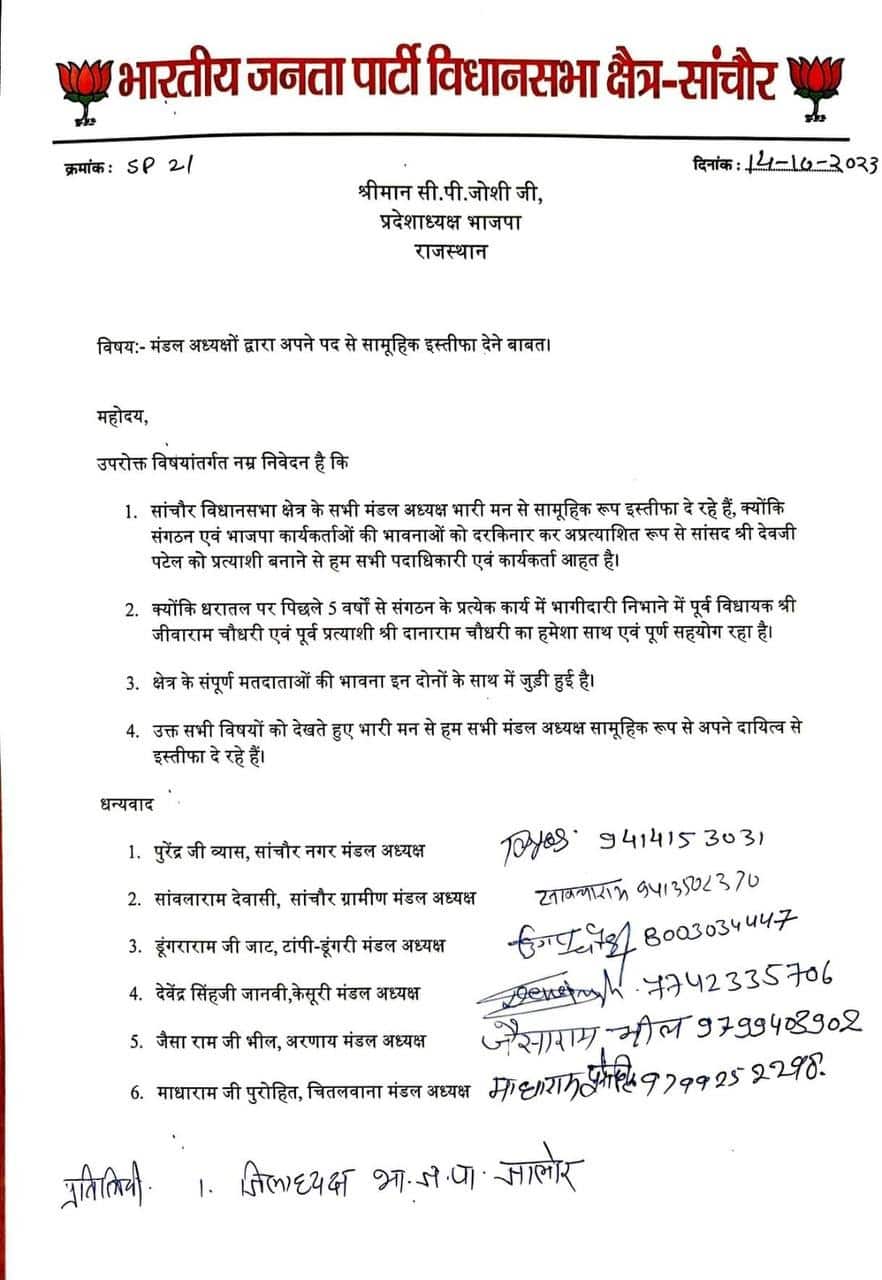 भारतीय जनता पार्टी विधानसभा क्षैत्र-सांचौर
क्रमांक: SP 21 दिनांक: 14-10-2023
श्रीमान सी.पी.जोशी जी,
प्रदेशाध्यक्ष भाजपा
राजस्थान
विषय:- मंडल अध्यक्षों द्वारा अपने पद से सामूहिक इस्तीफा देने बाबत।
महोदय,
उपरोक्त विषयांतर्गत नम्र निवेदन है कि
1. सांचौर विधानसभा क्षेत्र के सभी मंडल अध्यक्ष भारी मन से सामूहिक रूप इस्तीफा दे रहे हैं, क्योंकि
संगठन एवं भाजपा कार्यकर्ताओं की भावनाओं को दरकिनार कर अप्रत्याशित रूप से सांसद श्री देवजी
पटेल को प्रत्याशी बनाने से हम सभी पदाधिकारी एवं कार्यकर्ता आहत है।
2. क्योंकि धरातल पर पिछले 5 वर्षों से संगठन के प्रत्येक कार्य में भागीदारी निभाने में पूर्व विधायक श्री
जीवाराम चौधरी एवं पूर्व प्रत्याशी श्री दानाराम चौधरी का हमेशा साथ एवं पूर्ण सहयोग रहा है।
3. क्षेत्र के संपूर्ण मतदाताओं की भावना इन दोनों के साथ में जुड़ी हुई है।
4. उक्त सभी विषयों को देखते हुए भारी मन से हम सभी मंडल अध्यक्ष सामूहिक रूप से अपने दायित्व से
इस्तीफा दे रहे हैं।
धन्यवाद
1. पुरेंद्र जी व्यास, सांचौर नगर मंडल अध्यक्ष 9414153031
2. सांवलाराम देवासी, सांचौर ग्रामीण मंडल अध्यक्ष सावलाराम 9413502370
3. डूंगराराम जी जाट, टांपी-डूंगरी मंडल अध्यक्ष 8003034447
4. देवेंद्र सिंहजी जानवी,केसूरी मंडल अध्यक्ष 7742335706
5. जैसा राम जी भील, अरणाय मंडल अध्यक्ष जैसाराम भील 9799408902
6. माधाराम जी पुरोहित, चितलवाना मंडल अध्यक्ष माधाराम पुरोहित 9799252298.
प्रतिलिपी. 1. जिलाध्यक्ष भा.ज.पा. जालोर